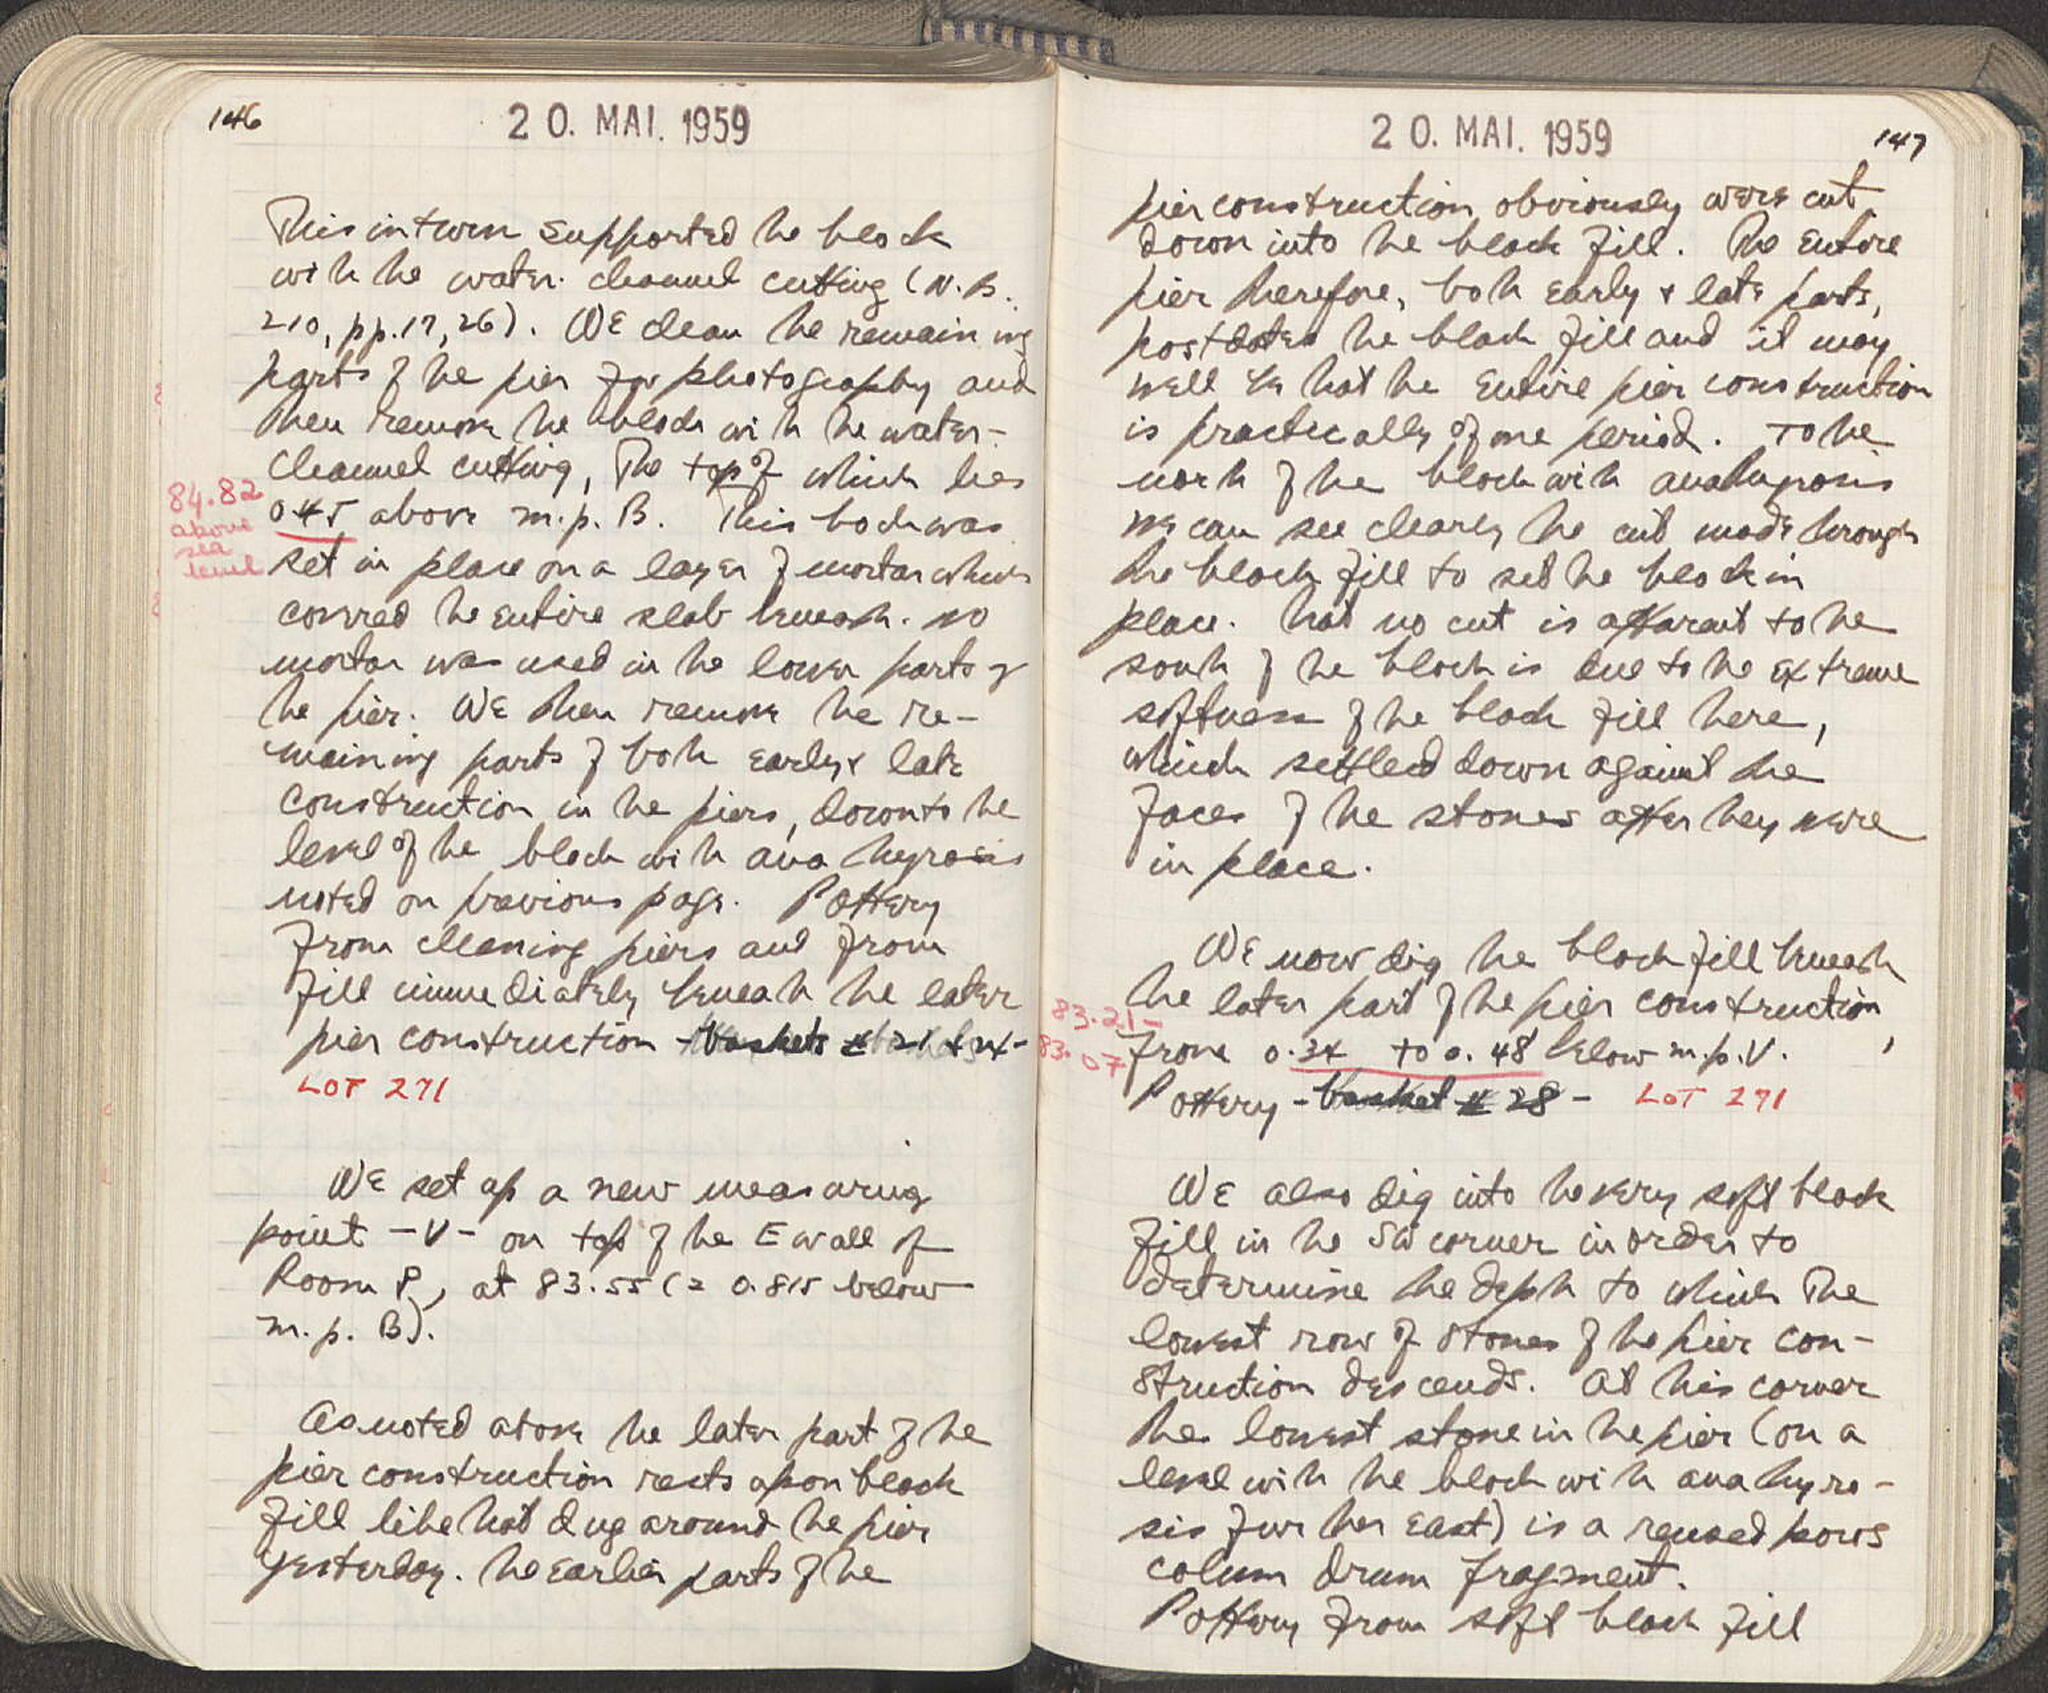 146
20. MAI. 1959
This in turn supported the block
with the water channel cutting (N.B.
210, pp. 17, 26). We clean the remaining
parts of the pier for photography and
then remove the block with the water-
channel cutting, the top of which lies
0.45 above m.p. B. This block was
84.82
above
sea
level
set in place on a layer of mortar which
covered the entire slab beneath. No
mortar was used in the lower parts of
the pier. We then remove the re-
maining parts of both early & late
construction in the piers, down to the
level of the block with anathyrosis
noted on previous page. Pottery
from cleaning piers and from
fill immediately beneath the later
pier construction - baskets # 21 + 24 -
LOT 271
We set up a new measuring
point - V - on top of the E wall of
Room P, at 83.55 (= 0.815 below
m.p. B).
As noted above the later part of the
pier construction rests upon black
fill like that dug around the pier
yesterday. The earlier parts of the
20. MAI. 1959
147
pier construction obviously were cut
down into the black fill. The entire
pier therefore, both early & late parts,
postdates the black fill and it may
well be that the entire pier construction
is practically of one period. To the
north of the block with anathyrosis
we can see clearly the cut made through
the black fill to set the block in
place. That no cut is apparent to the
south of the block is due to the extreme
softness of the black fill here,
which settled down against the
faces of the stones after they were
in place.
We now dig the black fill beneath
the later part of the pier construction,
83.21-
83.07
from 0.34 to 0.48 below m.p. V.
Pottery - basket # 28 - LOT 271
We also dig into the very soft black
fill in the SW corner in order to
determine the depth to which the
lowest row of stones of the pier con-
struction descends. At this corner
the lowest stone in the pier (on a
level with the block with anathyro-
sis further east) is a reused poros
colum drum fragment.
Pottery from soft black fill